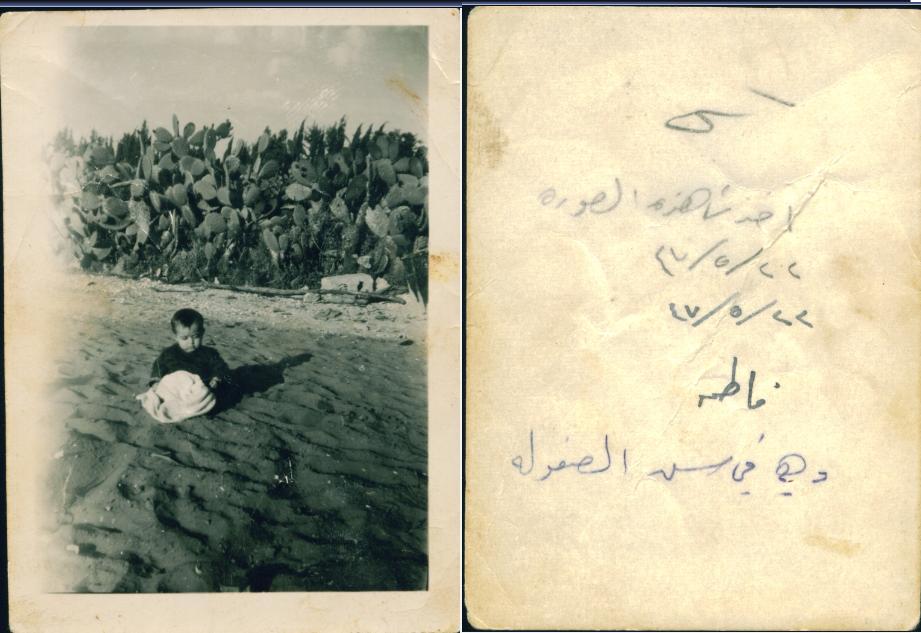 اخذت هذه الصوره
٤٧/٥/٢٢
٤٧/٥/٢٢
فاطمه
وهي في سن الطفوله